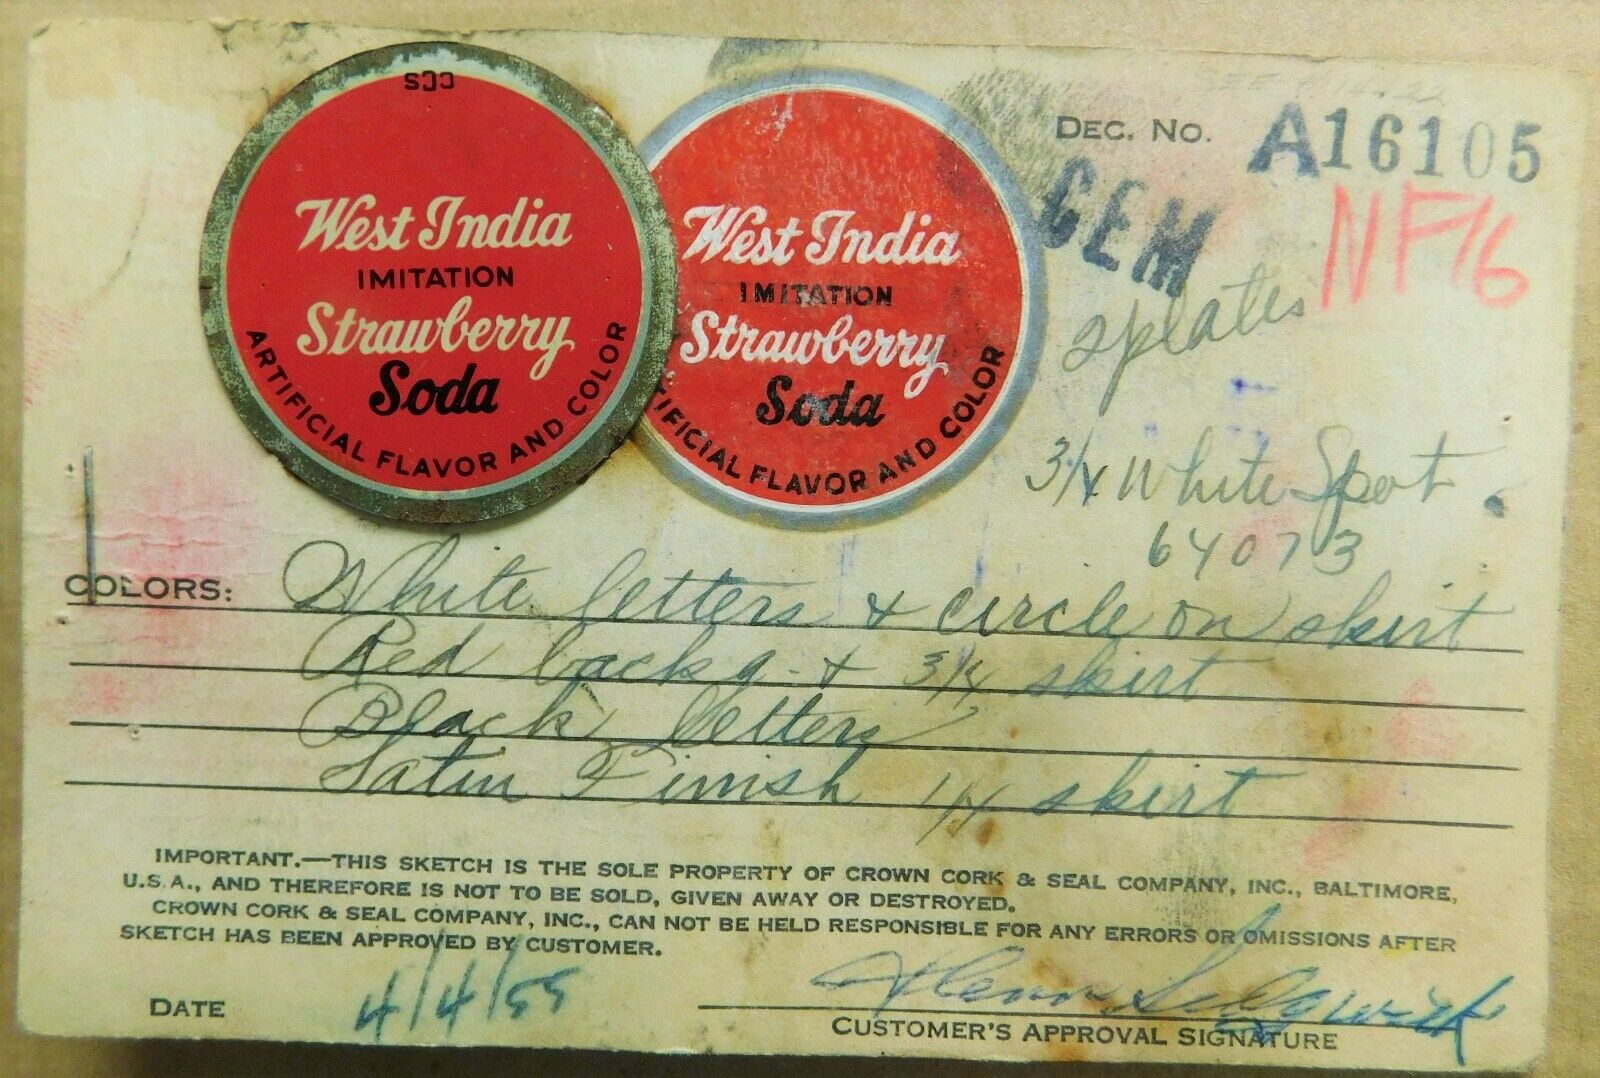 CCS
West India
IMITATION
Strawberry
Soda
ARTIFICIAL FLAVOR AND COLOR
West India
IMITATION
Strawberry
Soda
TIFICIAL FLAVOR AND COLOR
DEC. NO. A16105
GEM
NF16
2plates
3/4 White Spot
64073
COLORS: White letters & circle on skirt
Red backg. & 3/4 skirt
Black letters
Satin Finish 1/4 skirt
IMPORTANT.—THIS SKETCH IS THE SOLE PROPERTY OF CROWN CORK & SEAL COMPANY, INC., BALTIMORE,
U.S.A., AND THEREFORE IS NOT TO BE SOLD, GIVEN AWAY OR DESTROYED.
CROWN CORK & SEAL COMPANY, INC., CAN NOT BE HELD RESPONSIBLE FOR ANY ERRORS OR OMISSIONS AFTER
SKETCH HAS BEEN APPROVED BY CUSTOMER.
DATE 4/4/55
CUSTOMER'S APPROVAL SIGNATURE